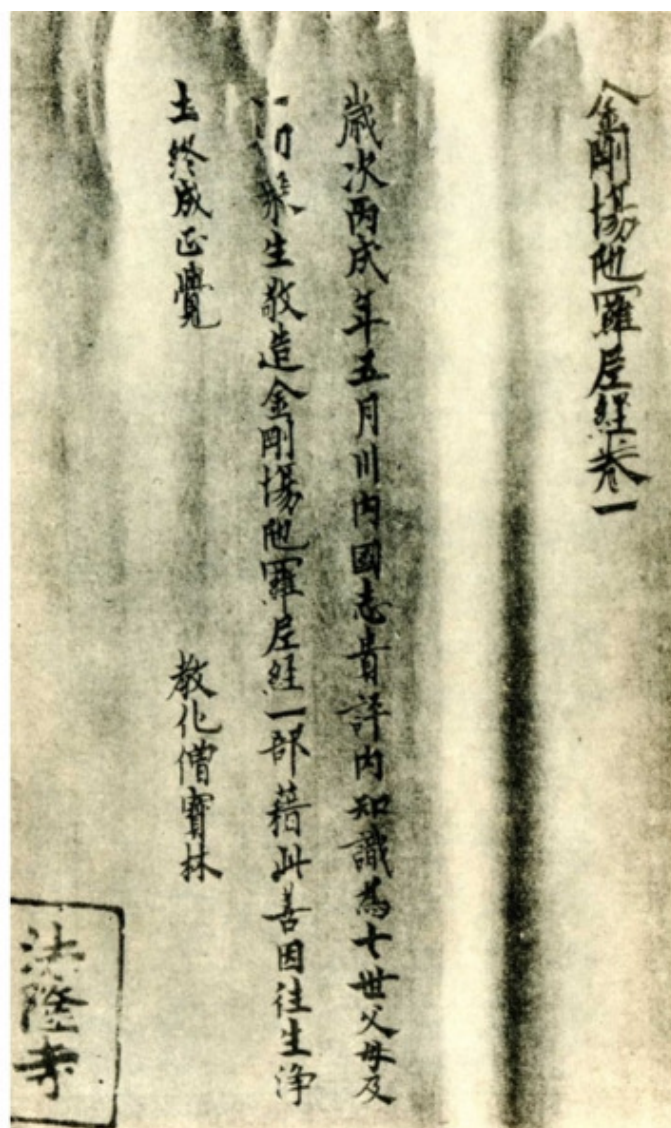 金剛場陁羅尼經卷一
歳次丙戌年五月川内國志貴評内知識為七世父母及
一切衆生敬造金剛場陁羅尼經一部藉此善因往生浄
土終成正覺
教化僧寶林
法隆寺